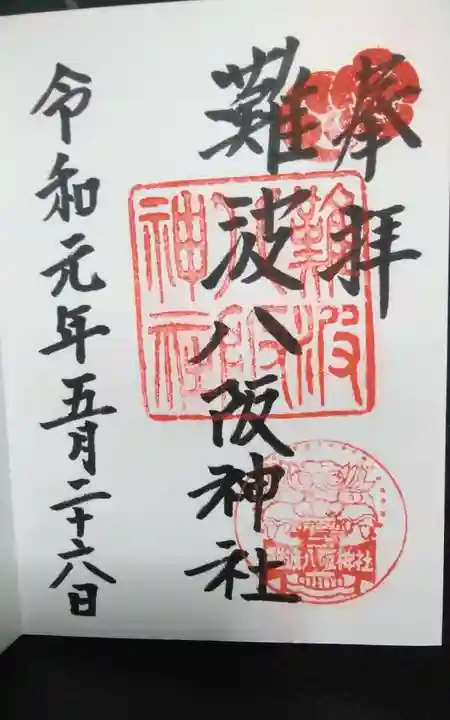 奉拝
難波八阪神社
令和元年五月二十六日
難波
八阪
神社
難波八阪神社